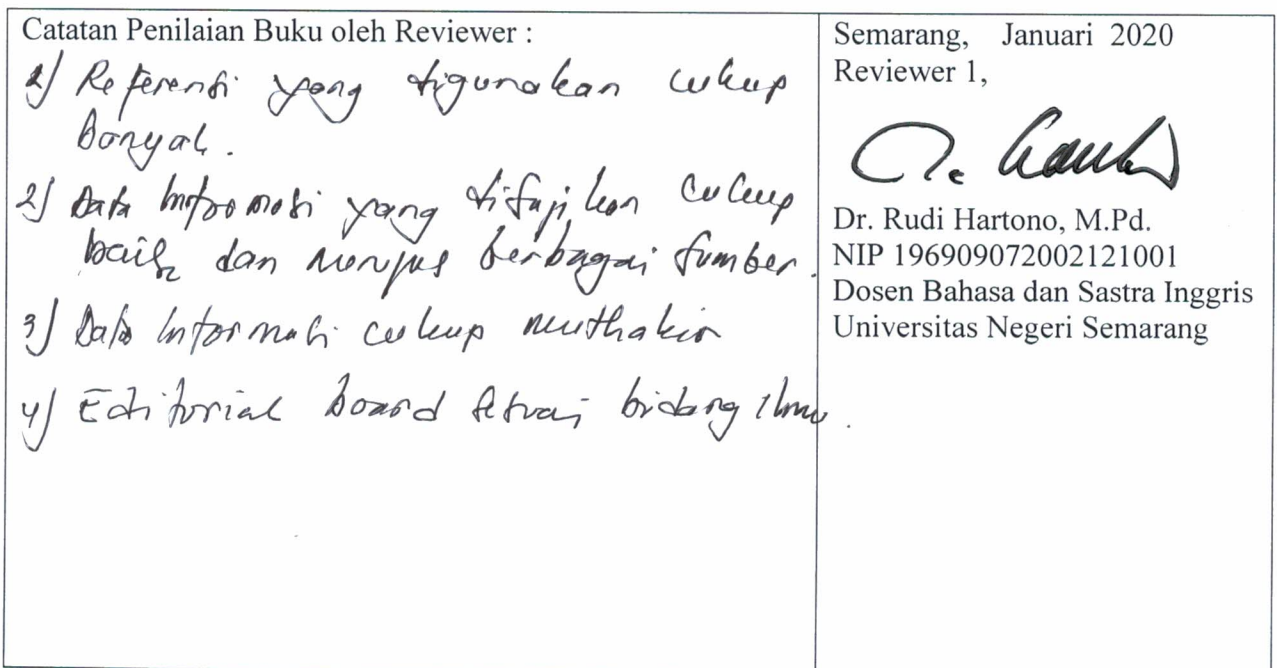 Catatan Penilaian Buku oleh Reviewer :
1) Referensi yang digunakan cukup
banyak.
2) Data Informasi yang disajikan cukup
baik dan merujuk berbagai sumber.
3) Data Informasi cukup muthakir
4) Editorial Board sesuai bidang ilmu.
Semarang, Januari 2020
Reviewer 1,
Dr. Rudi Hartono, M.Pd.
NIP 196909072002121001
Dosen Bahasa dan Sastra Inggris
Universitas Negeri Semarang